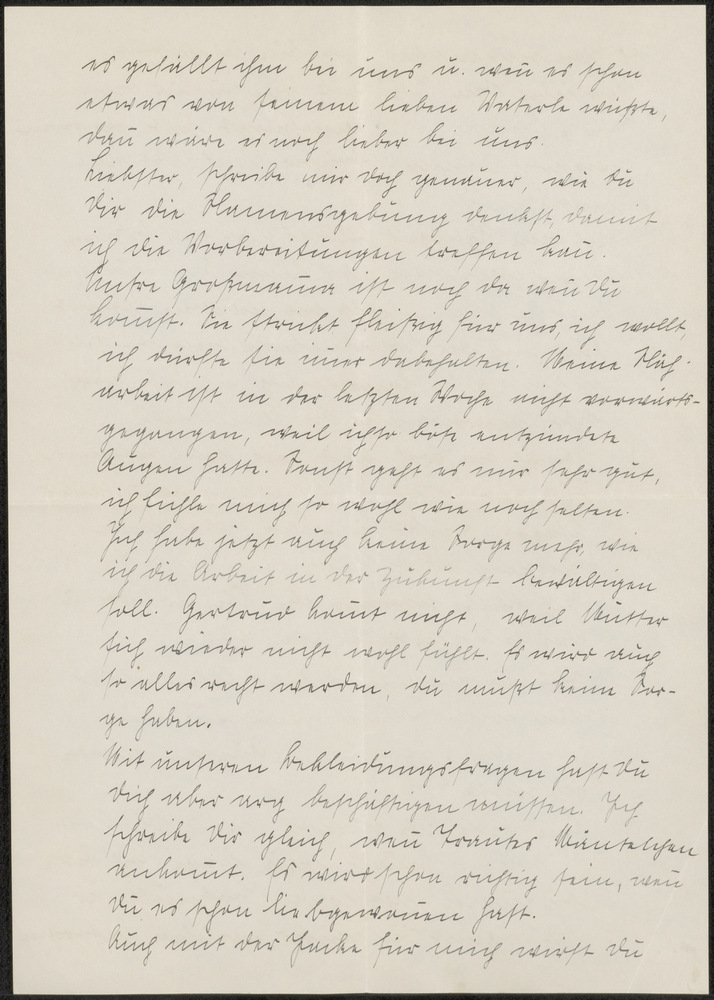 es gefällt ihm bei uns u. weñ es schon
etwas von seinem lieben Vaterle wüßte,
dañ wäre es noch lieber bei uns.
Liebster, schreibe mir doch genauer, wie Du
Dir die Namensgebung denkst, damit
ich die Vorbereitungen treffen kañ.
Unsre Großmama ist noch da weñ Du
kom̃st. Sie strickt fleißig für uns, ich wollt,
ich dürfte sie im̃er dabehalten. Meine Näh-
arbeit ist in der letzten Woche nicht vorwärts-
gegangen, weil ich so böse entzündete
Augen hatte. Sonst geht es mir sehr gut,
ich fühle mich so wohl wie noch selten.
Ich habe jetzt auch keine Sorge mehr, wie
ich die Arbeit in der Zukunft bewältigen
soll. Gertrud kom̃t nicht, weil Mutter
sich wieder nicht wohl fühlt. Es wird auch
so alles recht werden, du mußt keine Sor-
ge haben.
Mit unseren Bekleidungsfragen hast Du
Dich aber arg beschäftigen müssen. Ich
schreibe Dir gleich, weñ Trautes Mäntelchen
ankom̃t. Es wird schon richtig sein, weñ
Du es schon liebgewoñen hast.
Auch mit der Jacke für mich wirst Du